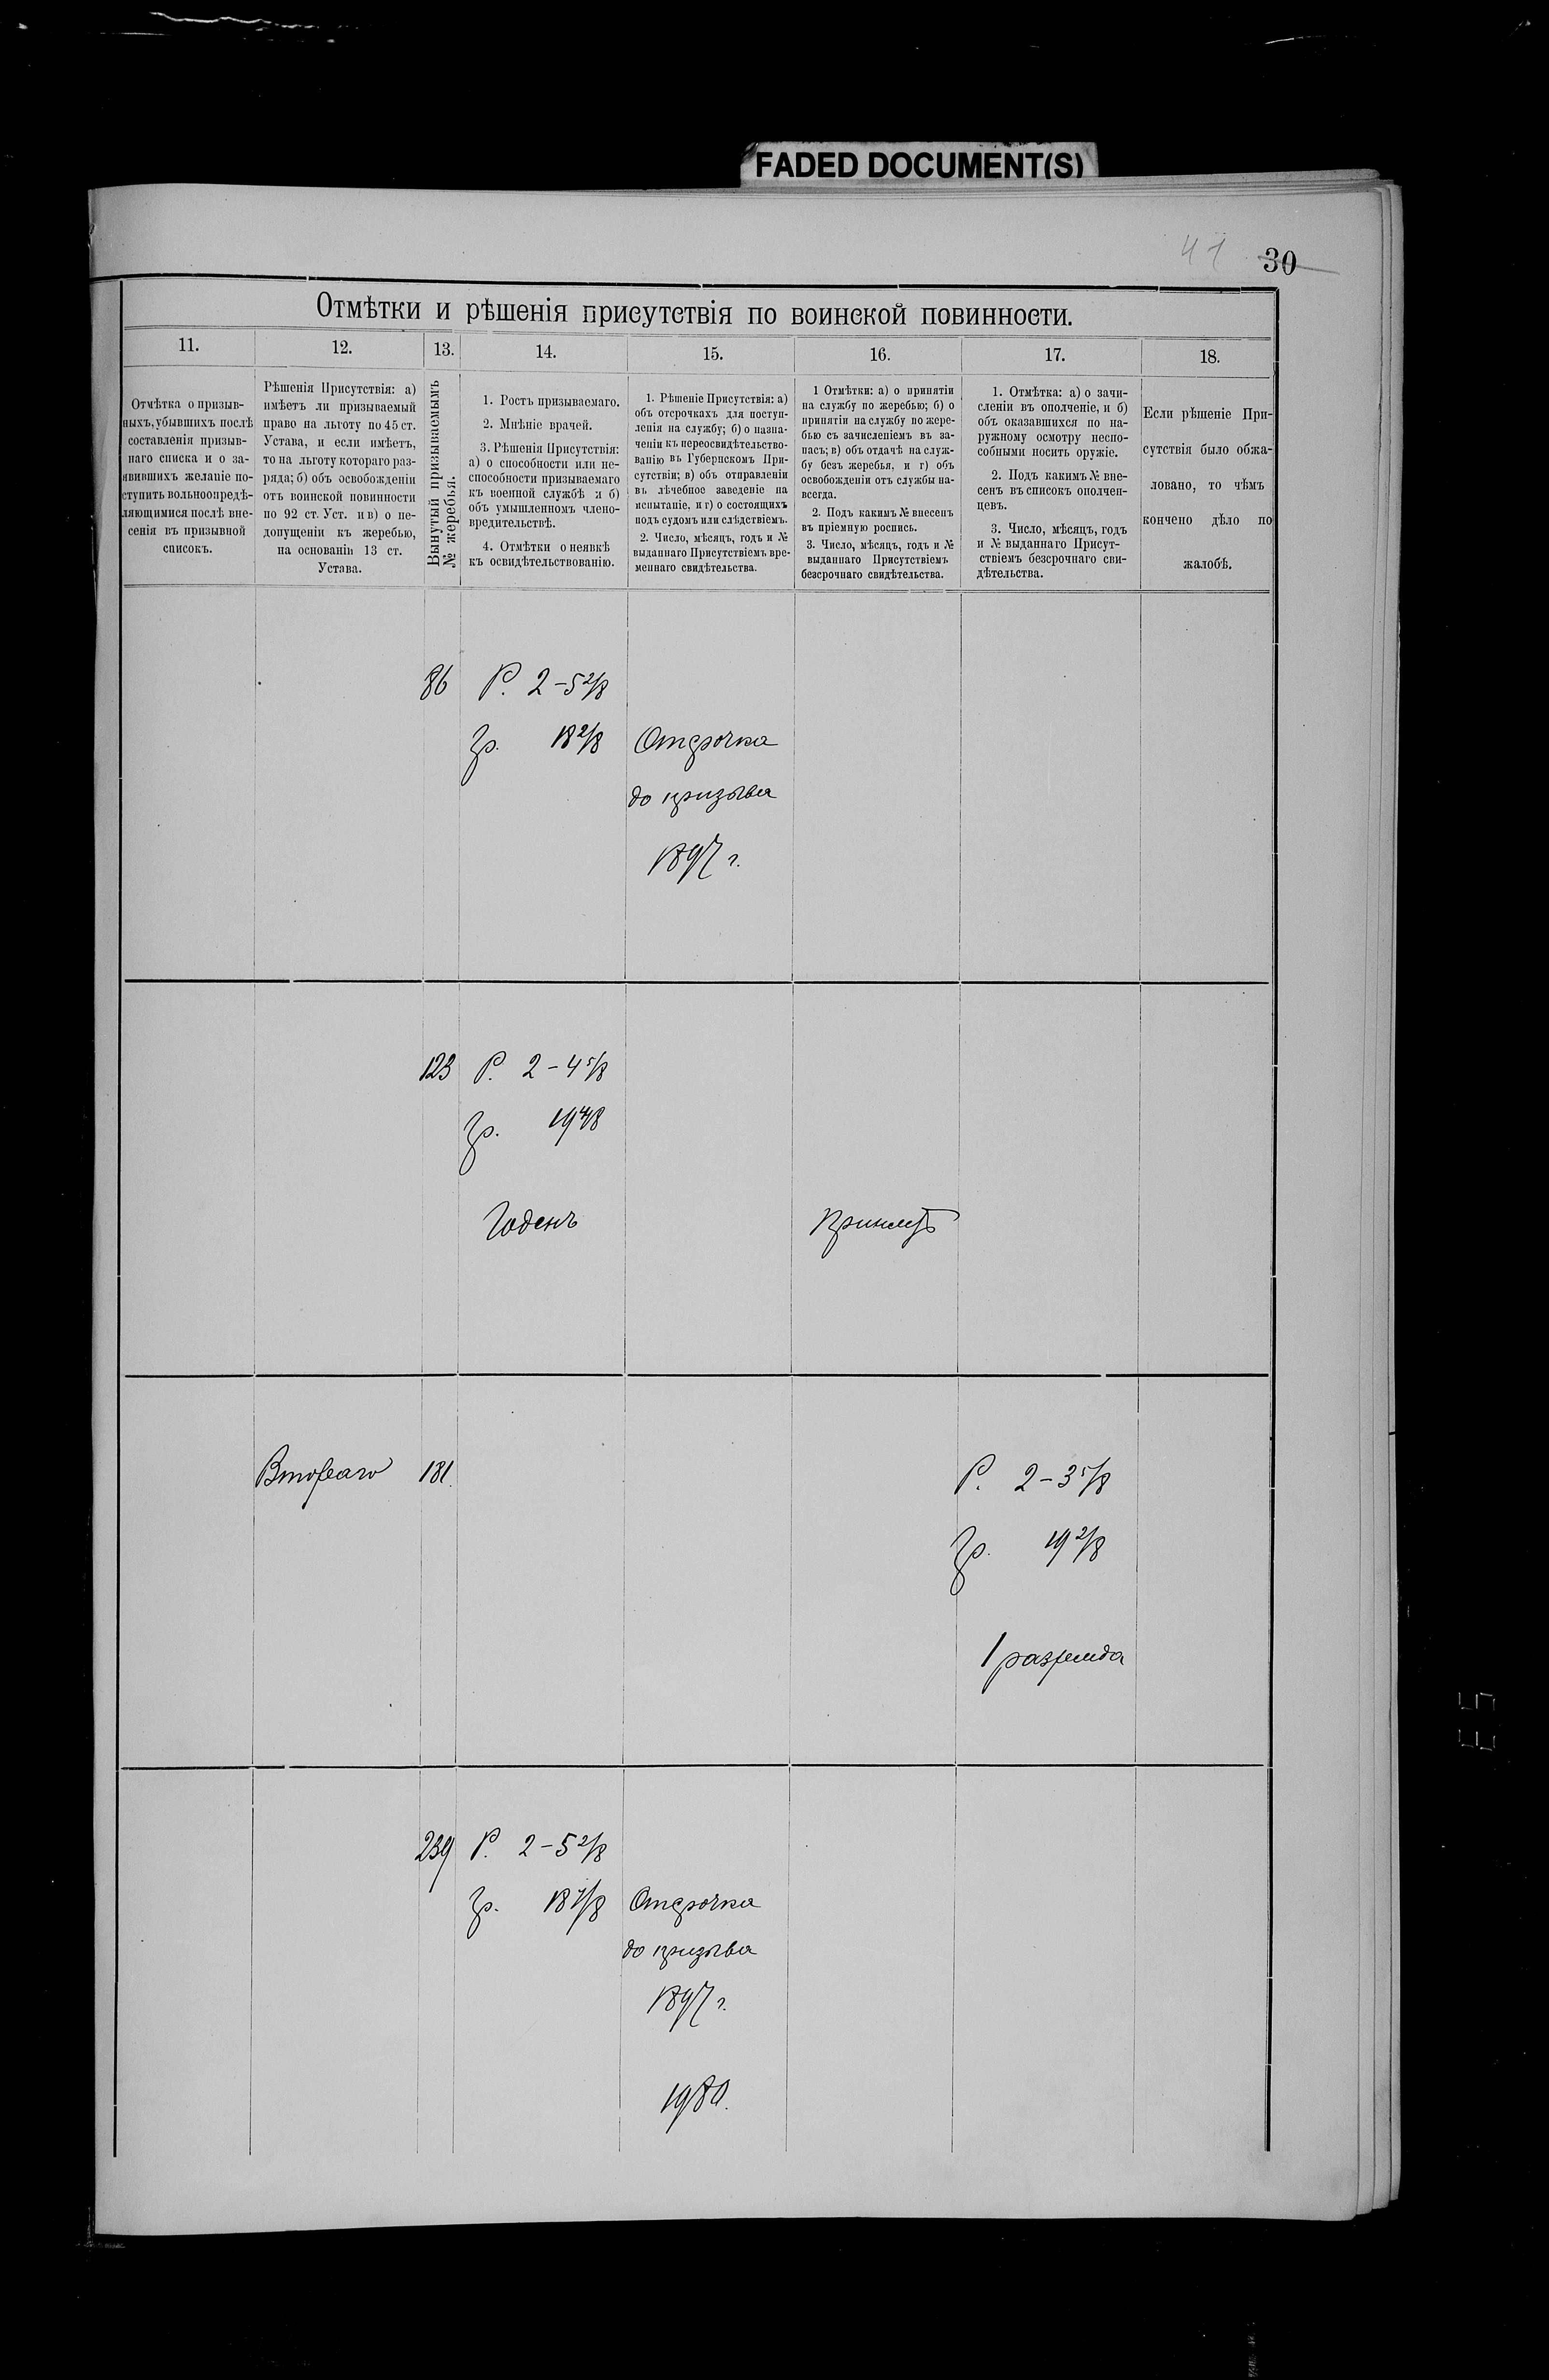 FADED DOCUMENT(S)
41
30
Отмѣтки и рѣшенія присутствія по воинской повинности.
11.
12.
13.
14.
15.
16.
17.
18.
Отмѣтка о призыв-
ныхъ, убывшихъ послѣ
составленія призыв-
наго списка и о за-
явившихъ желаніе по-
ступить вольноопредѣ-
ляющимися послѣ вне-
сенія въ призывной
списокъ.
Рѣшенія Присутствія: а)
имѣетъ ли призываемый
право на льготу по 45 ст.
Устава, и если имѣетъ,
то на льготу котораго раз-
ряда; б) объ освобожденіи
отъ воинской повинности
по 92 ст. Уст. и в) о не-
допущеніи къ жеребью,
на основаніи 13 ст.
Устава.
Вынутый призываемымъ
№ жеребья.
1. Ростъ призываемаго.
2. Мнѣніе врачей.
3. Рѣшенія Присутствія:
а) о способности или не-
способности призываемаго
къ военной службѣ и б)
объ умышленномъ члено-
вредительствѣ.
4. Отмѣтки о неявкѣ
къ освидѣтельствованію.
1. Рѣшеніе Присутствія: а)
объ отсрочкахъ для поступ-
ленія на службу; б) о назна-
ченіи къ переосвидѣтельство-
ванію въ Губернскомъ При-
сутствіи; в) объ отправленіи
въ лѣчебное заведеніе на
испытаніе, и г) о состоящихъ
подъ судомъ или слѣдствіемъ.
2. Число, мѣсяцъ, годъ и №
выданнаго Присутствіемъ вре-
меннаго свидѣтельства.
1 Отмѣтки: а) о принятіи
на службу по жеребью; б) о
принятіи на службу по жере-
бью съ зачисленіемъ въ за-
пасъ; в) объ отдачѣ на служ-
бу безъ жеребья, и г) объ
освобожденіи отъ службы на-
всегда.
2. Подъ какимъ № внесенъ
въ пріемную роспись.
3. Число, мѣсяцъ, годъ и №
выданнаго Присутствіемъ
безсрочнаго свидѣтельства.
1. Отмѣтка: а) о зачи-
сленіи въ ополченіе, и б)
объ оказавшихся по на-
ружному осмотру неспо-
собными носить оружіе.
2. Подъ какимъ № вне-
сенъ въ списокъ ополчен-
цевъ.
3. Число, мѣсяцъ, годъ
и № выданнаго Присут-
ствіемъ безсрочнаго сви-
дѣтельства.
Если рѣшеніе При-
сутствія было обжа-
ловано, то чѣмъ
кончено дѣло по
жалобѣ.
86 Р. 2-5 2/8
Гр. 18 2/8 Отсрочка
до призыва
1897 г.
123 Р. 2-4 5/8
Гр. 19 4/8
Годенъ Принятъ
Втораго 181. Р. 2-3 5/8
Гр. 19 2/8
1 разряда
239 Р. 2-5 2/8
Гр. 18 7/8 Отсрочка
до призыва
1897 г.
1980.